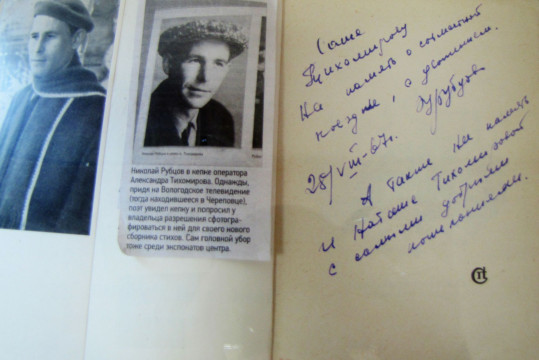 Николай Рубцов в кепке оператора
Александра Тихомирова. Однажды,
придя на Вологодское телевидение
(тогда находившееся в Череповце),
поэт увидел кепку и попросил у
владельца разрешения сфотогра-
фироваться в ней для своего нового
сборника стихов. Сам головной убор
тоже среди экспонатов центра.
Саше
Тихомирову
На память о совместной
поездке, с уважением.
28/VIII-67г. Н Рубцов
А также на память
и Наташе Тихомировой
с самыми добрыми
пожеланиями.